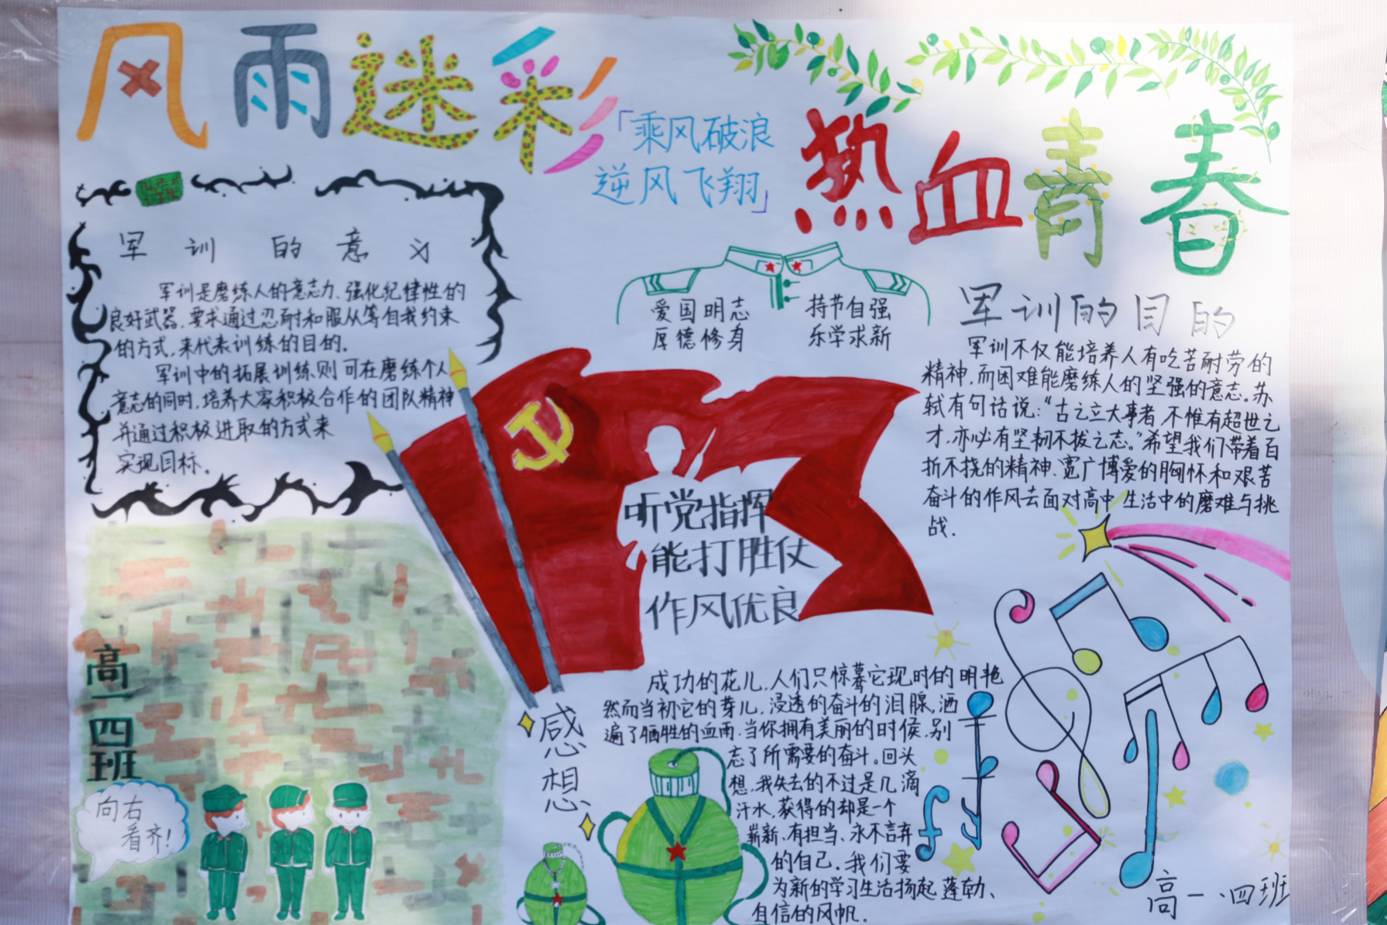 风雨迷彩
「乘风破浪
逆风飞翔」
热血青春
军训的意义
军训是磨练人的意志力、强化纪律性的
良好武器,要求通过忍耐和服从等自我约束
的方式,来代表训练的目的.
军训中的拓展训练,则可在磨练个人
意志的同时,培养大家积极合作的团队精神
并通过积极进取的方式来
实现目标.
爱国明志
厚德修身
持节自强
乐学求新
军训的目的
军训不仅能培养人有吃苦耐劳的
精神,而困难能磨练人的坚强的意志.苏
轼有句话说:"古之立大事者,不惟有超世之
才,亦必有坚韧不拔之志。"希望我们带着百
折不挠的精神,宽广博爱的胸怀和艰苦
奋斗的作风去面对高中生活中的磨难与挑
战.
听党指挥
能打胜仗
作风优良
高一四班
向右
看齐!
感想
成功的花儿,人们只惊慕它现时的明艳
然而当初它的芽儿,浸透的奋斗的泪腺,洒
遍了牺牲的血雨.当你拥有美丽的时候,别
忘了所需要的奋斗。回头
想,我失去的不过是几滴
汗水,获得的却是一个
崭新、有担当、永不言弃
的自己.我们要
为新的学习生活扬起蓬勃、
自信的风帆.
高一、四班